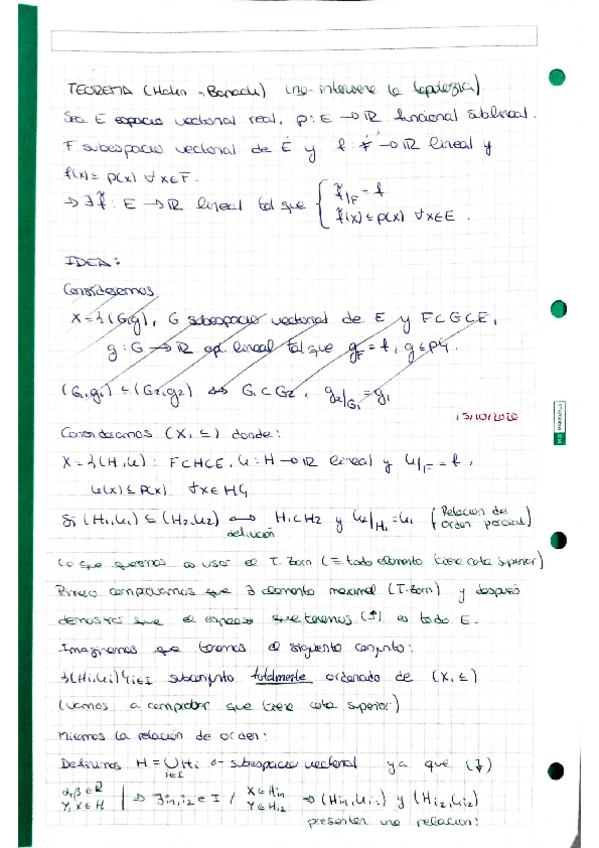 TEOREMA (Hahn-Banach) (no interviene la topología)
Sea E espacio vectorial real, p: E → ℝ funcional sublineal.
F subespacio vectorial de E y f: F → ℝ lineal y
f(x) ≤ p(x) ∀x∈F.
⇒ ∃ f̃: E → ℝ lineal tal que { f̃|F = f
f̃(x) ≤ p(x) ∀x∈E.
IDEA:
Consideremos
X = {(G,g), G subespacio vectorial de E y F⊂G⊂E,
g: G → ℝ ap. lineal tal que g|F = f, g ≤ p}.
(G1,g1) ≤ (G2,g2) ⇔ G1⊂G2, g2|G1 = g1
13/10/2020
Consideramos (X, ≤) donde:
X = {(H,u): F⊂H⊂E, u: H → ℝ lineal y u|F = f,
u(x) ≤ p(x) ∀x∈H}
Si (H1,u1) ≤ (H2,u2) ⟷ H1⊂H2 y u2|H1 = u1 (Relación de orden parcial)
definición
Lo que queremos es usar el T. Zorn (≡ todo elemento tiene cota superior)
Primero comprobamos que ∃ elemento maximal (T. Zorn) y después
demostrar que el espacio que tenemos (↑) es todo E.
Imaginemos que tenemos el siguiente conjunto:
{(Hi,ui)}i∈I subconjunto totalmente ordenado de (X, ≤)
(vamos a comprobar que tiene cota superior)
Miramos la relación de orden:
Definimos H = ⋃ Hi subespacio vectorial ya que (↓)
i∈I
α,β∈ℝ
Y,X∈H | ⇒ ∃ i1,i2 ∈ I / X∈Hi1
Y∈Hi2 ⇒ (Hi1,ui1) y (Hi2,ui2)
presentan una relación: